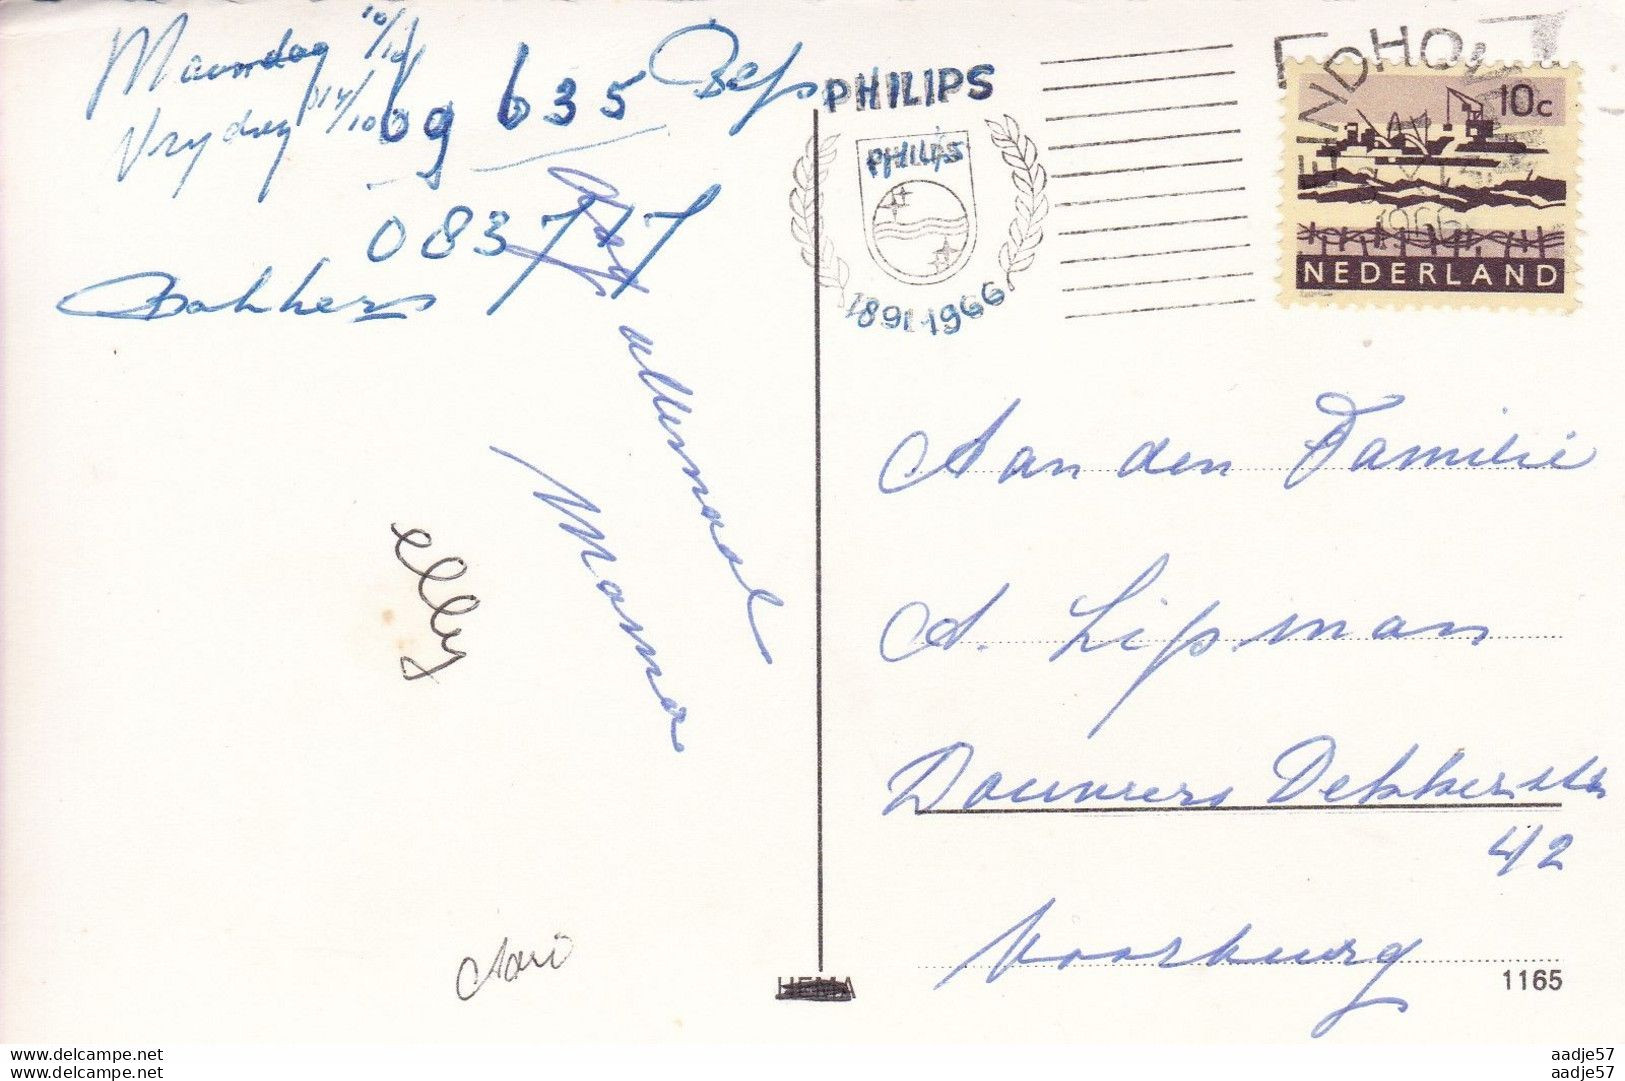 Maandag 10/10
Vrydag 14/10
69 635 Bep
08377
Bakkers
Dag allemaal
Mama
Elly
PHILIPS
PHILIPS
1891-1966
EINDHOVEN
1966
10c
NEDERLAND
Aan den Familie
A. Lipman
Douwers Dekkerstr
42
Voorburg
HEMA
1165
www.delcampe.net
www.delcampe.net
aadje57
aadje57